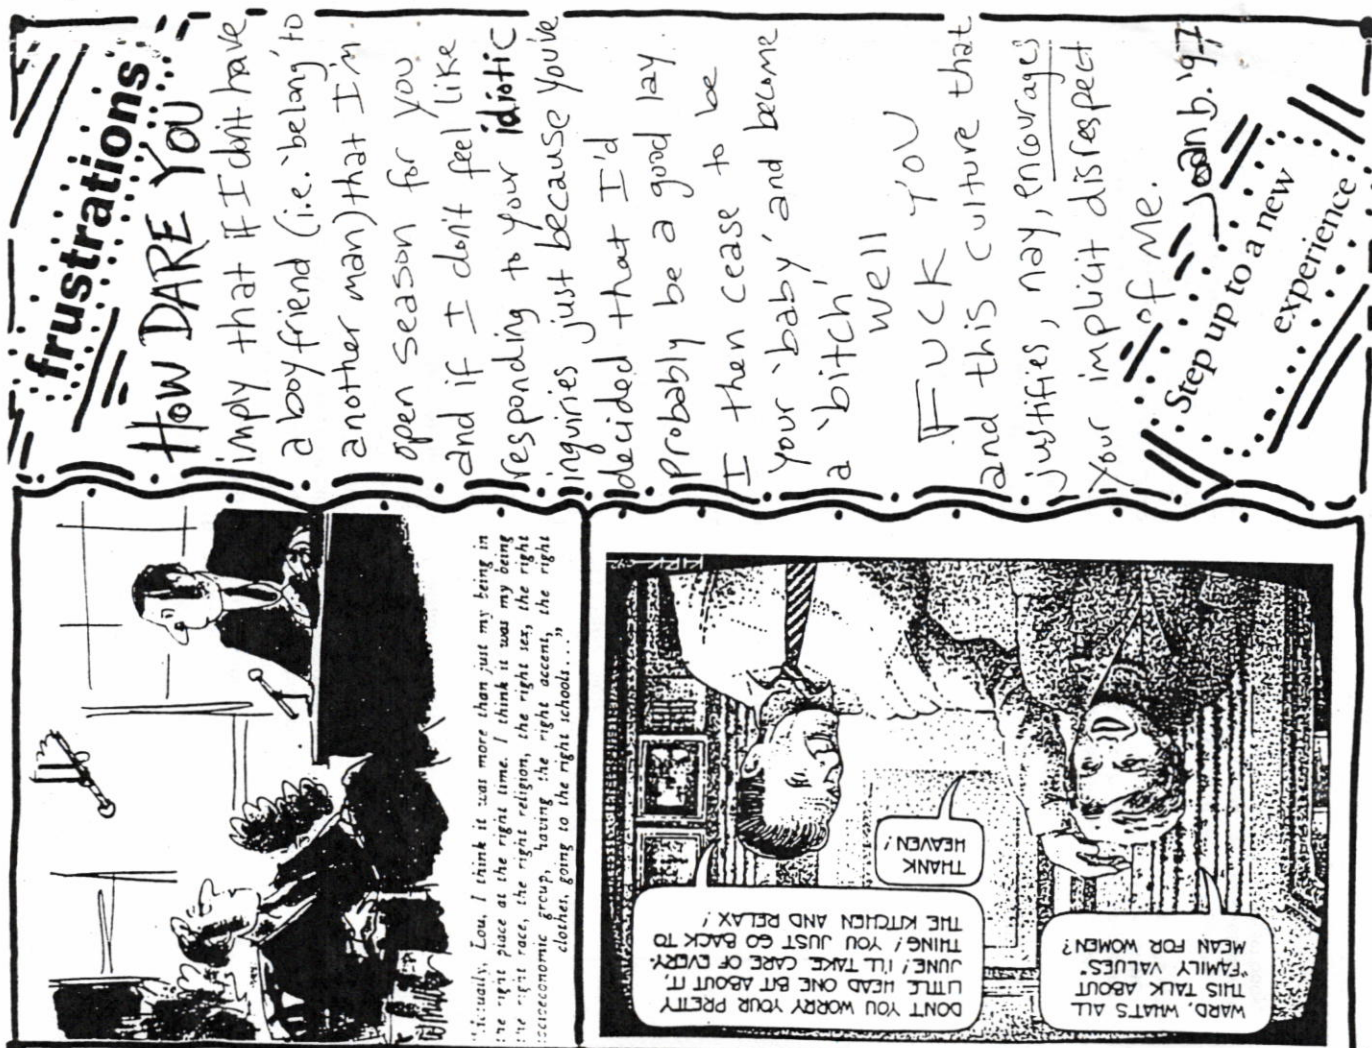 frustrations
HOW DARE YOU
imply that if I don't have
a boyfriend (i.e. 'belong' to
another man) that I'm
open season for you
and if I don't feel like
responding to your idiotic
inquiries just because you've
decided that I'd
probably be a good lay.
I then cease to be
your 'baby' and become
a 'bitch'
well
FUCK YOU
and this culture that
justifies, nay, encourages
your implicit disrespect
of me.
Joan b. '97
Step up to a new
experience
"Actually, Lou, I think it was more than just my being in
the right place at the right time. I think it was my being
the right race, the right religion, the right sex, the right
socioeconomic group, having the right accent, the right
clothes, going to the right schools..."
WARD, WHAT'S ALL
THIS TALK ABOUT
"FAMILY VALUES"
MEAN FOR WOMEN?
DON'T YOU WORRY YOUR PRETTY
LITTLE HEAD ONE BIT ABOUT IT,
JUNE! I'LL TAKE CARE OF EVERY-
THING! YOU JUST GO BACK TO
THE KITCHEN AND RELAX!
THANK
HEAVEN!
KIRK